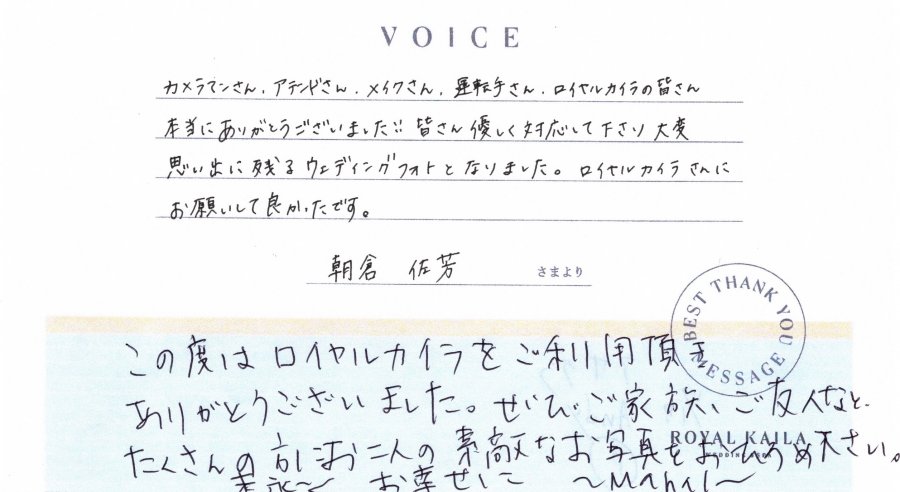 VOICE
カメラマンさん、アテンドさん、メイクさん、運転手さん、ロイヤルカイラの皆さん
本当にありがとうございました!! 皆さん優しく対応して下さり大変
思い出に残るウェディングフォトとなりました。ロイヤルカイラさんに
お願いして良かったです。
朝倉 佐芳 さまより
BEST THANK YOU MESSAGE
この度はロイヤルカイラをご利用頂き
ありがとうございました。ぜひご家族、ご友人など
ROYAL KAILA
たくさんの方にお二人の素敵なお写真をお 下さい。
末永~ お幸せに